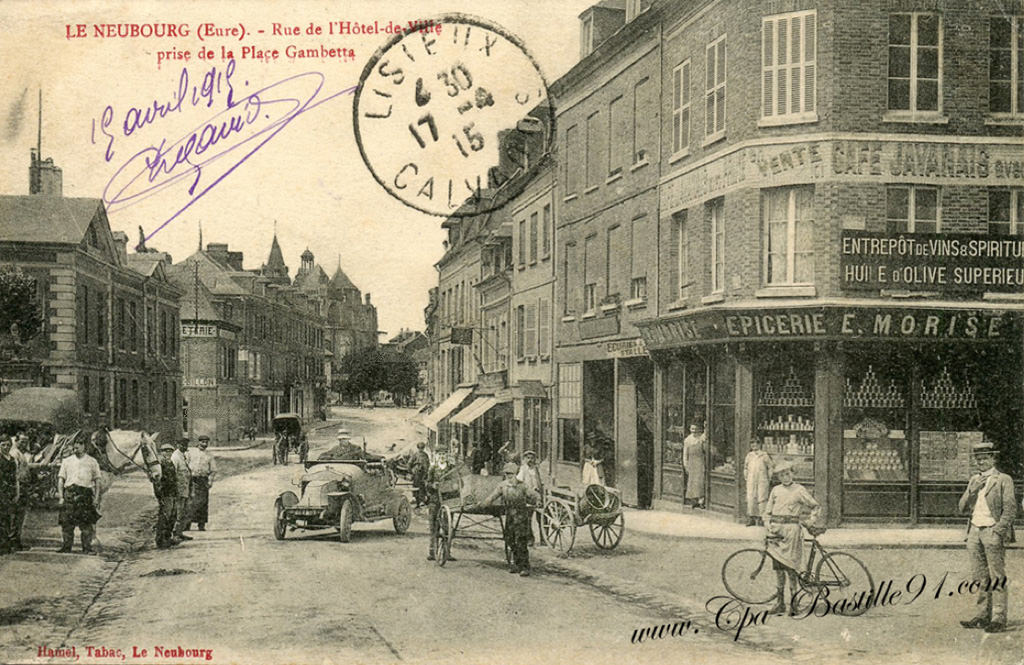 LE NEUBOURG (Eure). - Rue de l'Hôtel-de-Ville
prise de la Place Gambetta
19 avril 1915
LISIEUX
30
17 -4
15
CALVADOS
VENTE
CAFÉ JAVANAIS
ENTREPÔT DE VINS & SPIRITU
HUILE D'OLIVE SUPERIEU
EPICERIE E. MORISE
ETERIE
www. Cpa-Bastille91.com
Hamel, Tabac, Le Neubourg